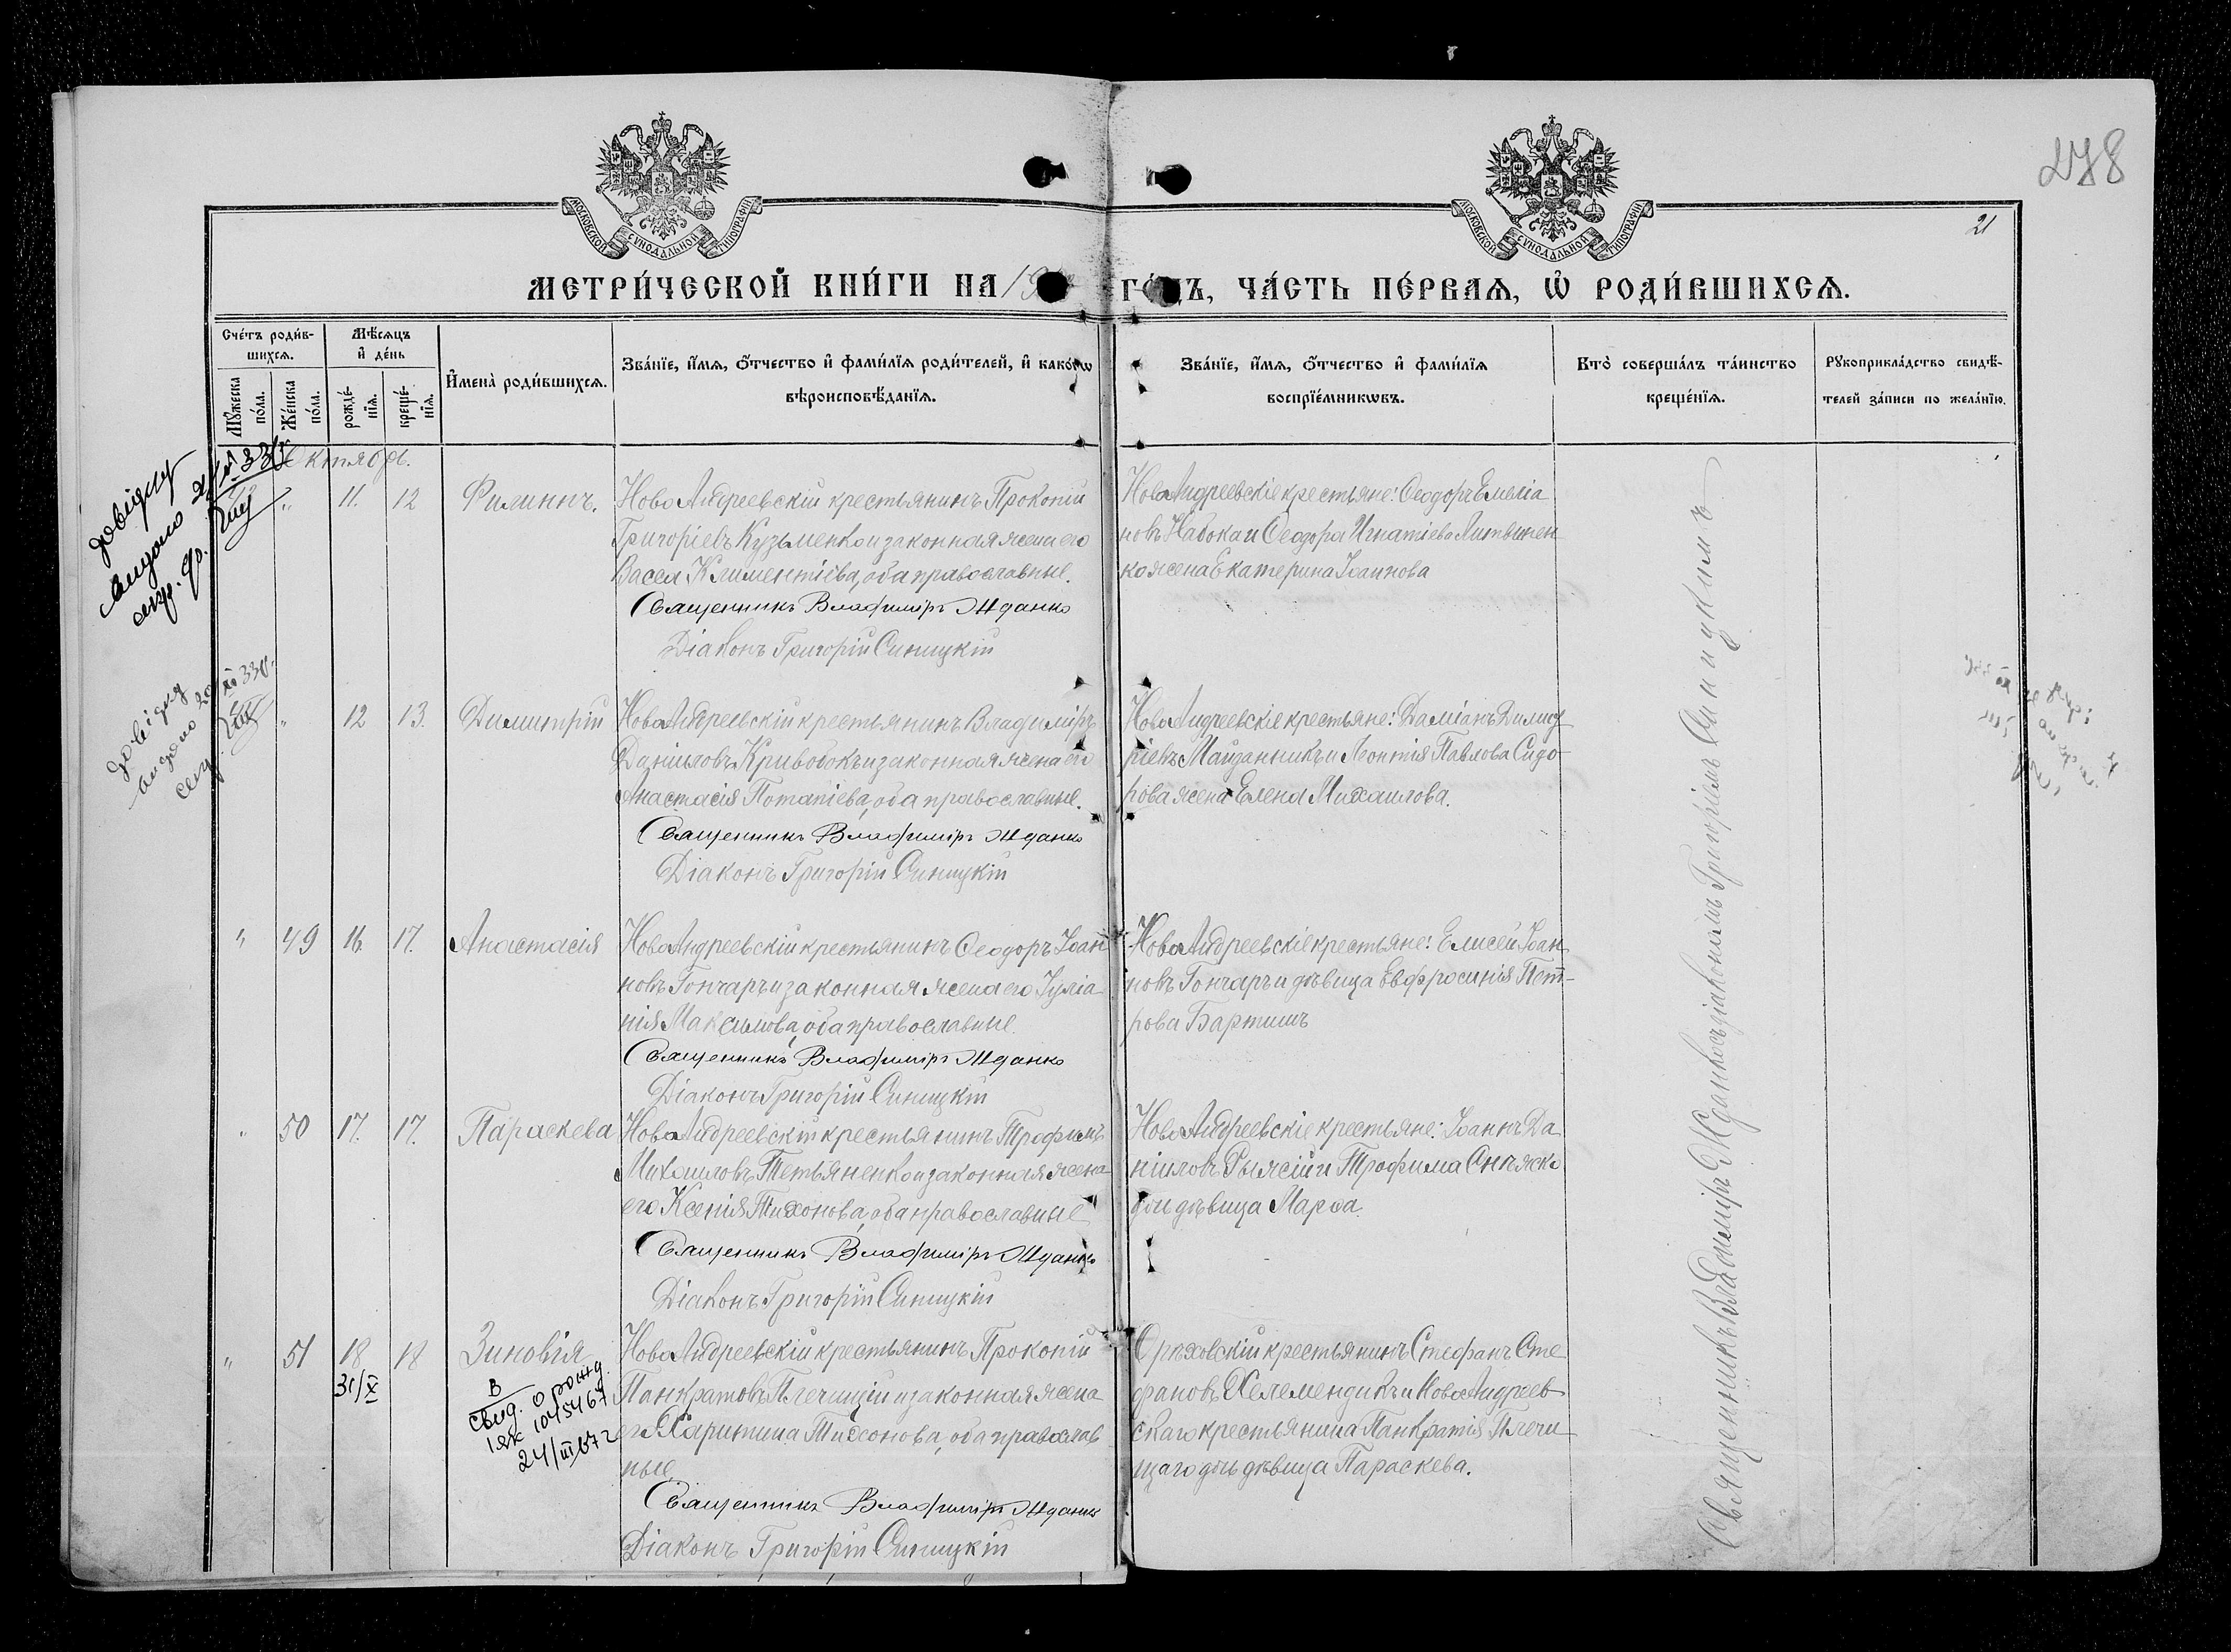 278
21
МОСКОВСКОЙ СѴНОДАЛЬНОЙ ТИПОГРАФІИ
МОСКОВСКОЙ СѴНОДАЛЬНОЙ ТИПОГРАФІИ
МЕТРИ́ЧЕСКОЙ КНИ́ГИ НА 19
ГО́ДЪ, ЧА́СТЬ ПЕ́РВАЯ, Ѡ҆ РОДИ́ВШИХСЯ.
Сче́тъ роди́в-
шихся.
Мѣ́сяцъ
и҆ де́нь
Мꙋ́жеска
по́ла.
Же́нска
по́ла.
рожде́-
нїя.
креще́-
нїя.
И҆мена̀ роди́вшихся.
Зва́нїе, и҆́мя, ѻ҆́тчество и҆ фами́лїя роди́телей, и҆ како́гѡ
вѣроисповѣ́данїя.
Зва́нїе, и҆́мя, ѻ҆́тчество и҆ фами́лїя
воспрїе́мникѡвъ.
Кто̀ соверша́лъ та́инство
креще́нїя.
Рꙋкоприкла́дство свидѣ́-
телей за́писи по жела́нїю.
Октябрь.
довідку
видано
„ 11. 12 Филиппъ.
НовоАндреевскій крестьянинъ Прокопій
Григоріевъ Кузьменко и законная жена его
Васса Климентіева, оба православные.
Священникъ Владиміръ Жданко
Діаконъ Григорій Синицкій
НовоАндреевскіе крестьяне: Ѳеодоръ Емеліа
новъ Набока и Ѳеодора Игнатіева Литвинен
ко жена Екатерина Іоаннова
довідку
видано
„ 12 13. Димитрій
НовоАндреевскій крестьянинъ Владиміръ
Даніиловъ Кривобокъ и законная жена его
Анастасія Потапіева, оба православные.
Священникъ Владиміръ Жданко
Діаконъ Григорій Синицкій
НовоАндреевскіе крестьяне: Даміанъ Димит
ріевъ Майданникъ и Леонтія Павлова Сидо-
рова жена Елена Михаилова.
„ 49 16. 17. Анастасія
НовоАндреевскій крестьянинъ Ѳеодоръ Іоан
новъ Гончаръ и законная жена его Іуліа
нія Максимова, оба православные.
Священникъ Владиміръ Жданко
Діаконъ Григорій Синицкій
НовоАндреевскіе крестьяне: Елисей Іоан
новъ Гончаръ и дѣвица Евфросинія Пет-
рова Бартишъ
„ 50 17. 17. Параскева
НовоАндреевскій крестьянинъ Трофимъ
Михаиловъ Тетьяненко и законная жена
его Ксенія Тихонова, оба православные
Священникъ Владиміръ Жданко
Діаконъ Григорій Синицкій
НовоАндреевскіе крестьяне: Іоаннъ Да
ніиловъ Рыжій и Трофима
дѣвица Марѳа.
„ 51 18 18 Зиновія
31/X
В
свид. о рожд.
1 ЯК 1045467
24/III 57 г
НовоАндреевскій крестьянинъ Прокопій
Панкратовъ Плечицій и законная жена
его Харитина Тихонова, оба православ
ные.
Священникъ Владиміръ Жданко
Діаконъ Григорій Синицкій
Орѣховскій крестьянинъ Стефанъ Сте
фановъ Хелемендикъ и НовоАндреев
скаго крестьянина Панкратія Плечи
щаго дочь дѣвица Параскева.
Священникъ Владиміръ Жданко съ діакономъ Григоріемъ Синицкимъ